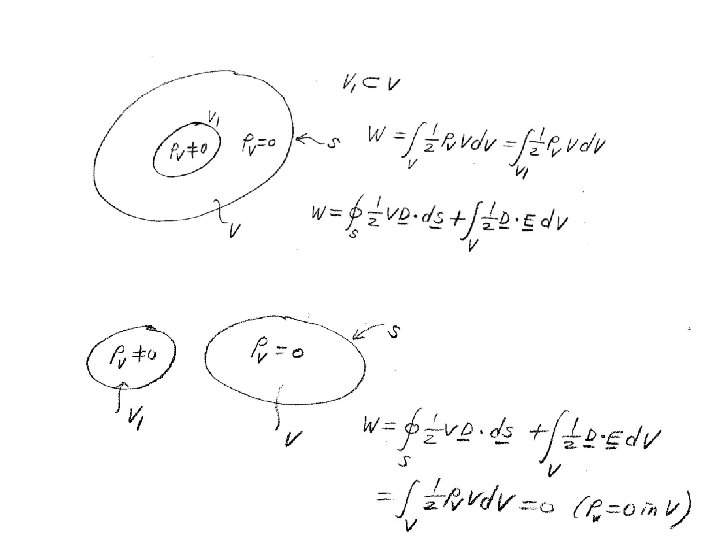 V₁ ⊂ V
V₁
ρᵥ ≠ 0
ρᵥ = 0
S
W = ∫_V ½ ρᵥ V dV = ∫_V₁ ½ ρᵥ V dV
V
W = ∮_S ½ V D̲ · dS̲ + ∫_V ½ D̲ · E̲ dV
S
ρᵥ ≠ 0
ρᵥ = 0
V₁
V
W = ∮_S ½ V D̲ · dS̲ + ∫_V ½ D̲ · E̲ dV
= ∫_V ½ ρᵥ V dV = 0 (ρᵥ = 0 in V)